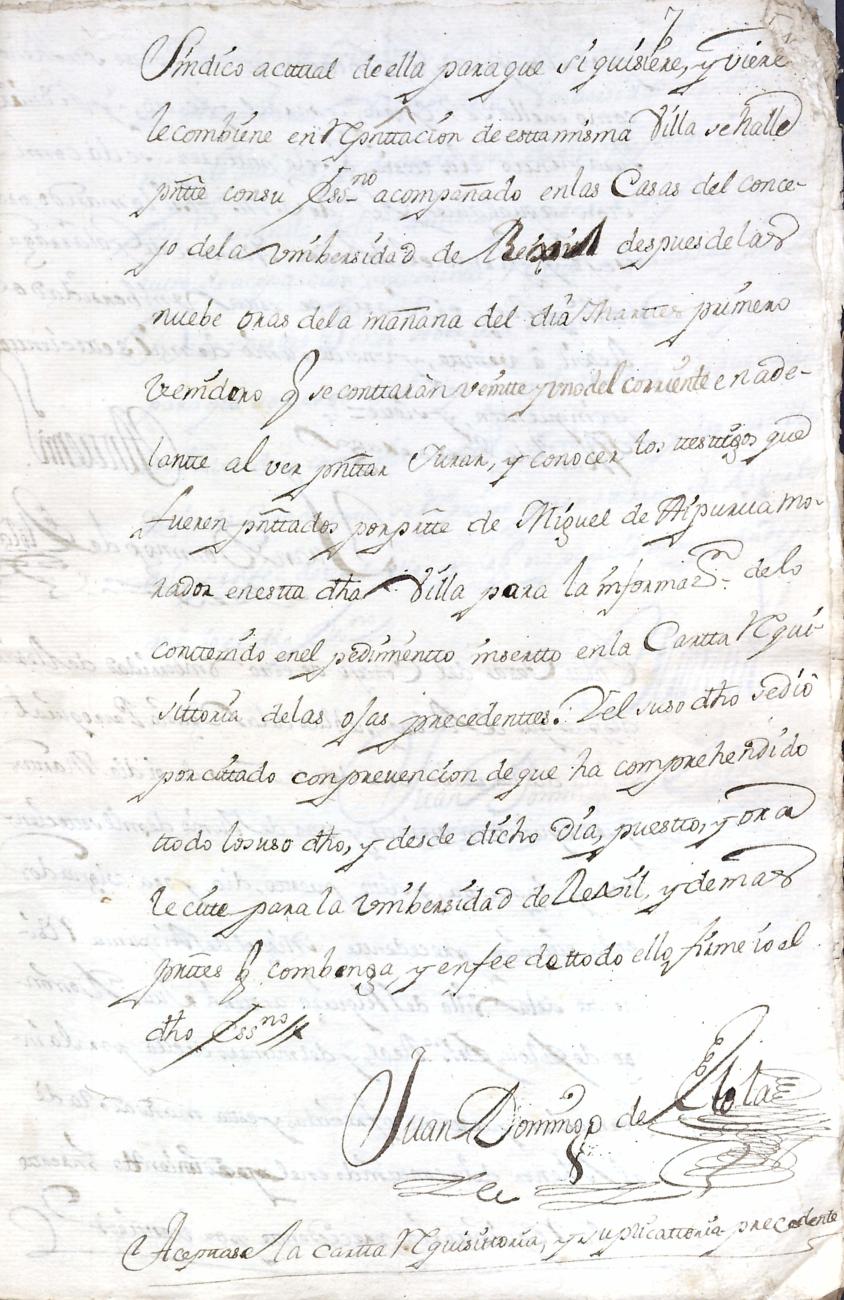 7
Sindico actual de ella para que si quisiere, y viere
le combiene en Rpnttacion de estta misma Villa se halle
pntte con su Essno acompañado en las Casas del conce-
jo de la Vnibersidad de despues de las
nuebe oras de la mañana del dia Marttes primero
venidero q se conttaràn veintte y uno del corriente en ade-
lantte al ver pnttar Jurar, y conocer los ttesttigos que
fueren pnttados por pntte de Miguel de Aipurua mo-
rador en estta dha Villa para la informazn de lo
conttenido en el pedimentto insertto en la Cartta Rqui-
sittoria de las ojas precedenttes. Y el suso dho se diò
por cittado con prevencion de que ha comprehendido
ttodo lo suso dho, y desde dicho dia, puestto, y ora
le citte para la Vnibersidad de Rexil, y demas
prttes q combenga, y en fee de ttodo ello firme io el
dho Essno
Juan Domingo de Elola
Aceptase la cartta Rquisittoria, y suplicattoria precedente